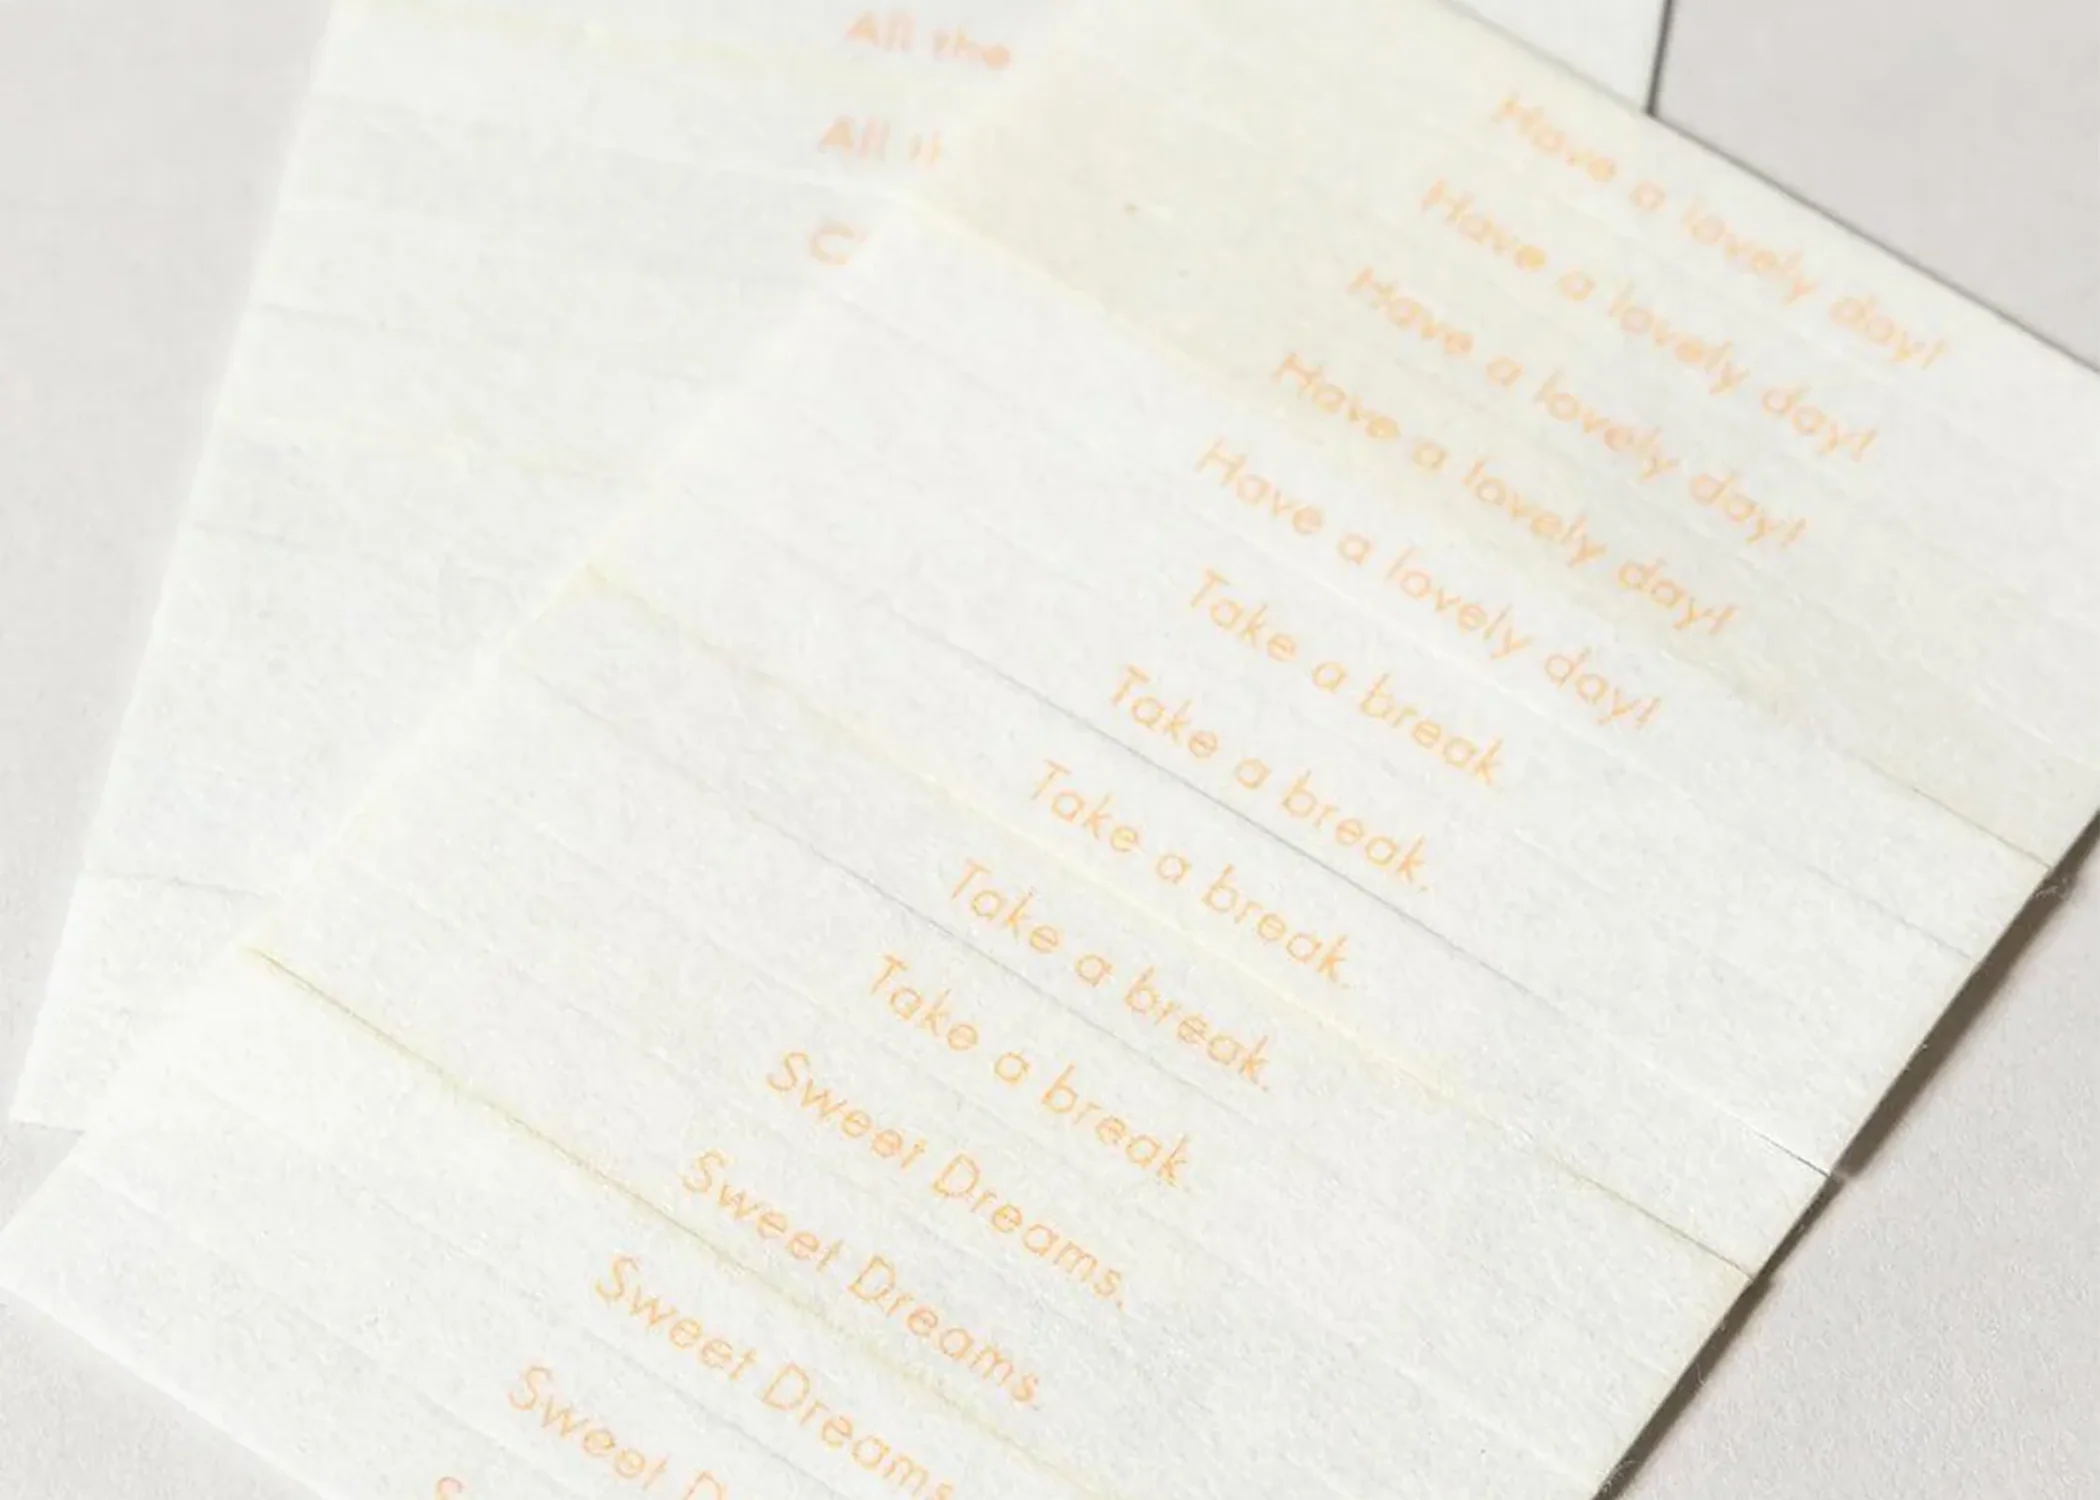 All the
All
Have a lovely day!
Have a lovely day!
Have a lovely day!
Have a lovely day!
Have a lovely day!
Take a break.
Take a break.
Take a break.
Take a break.
Take a break.
Sweet Dreams.
Sweet Dreams.
Sweet Dreams.
Sweet